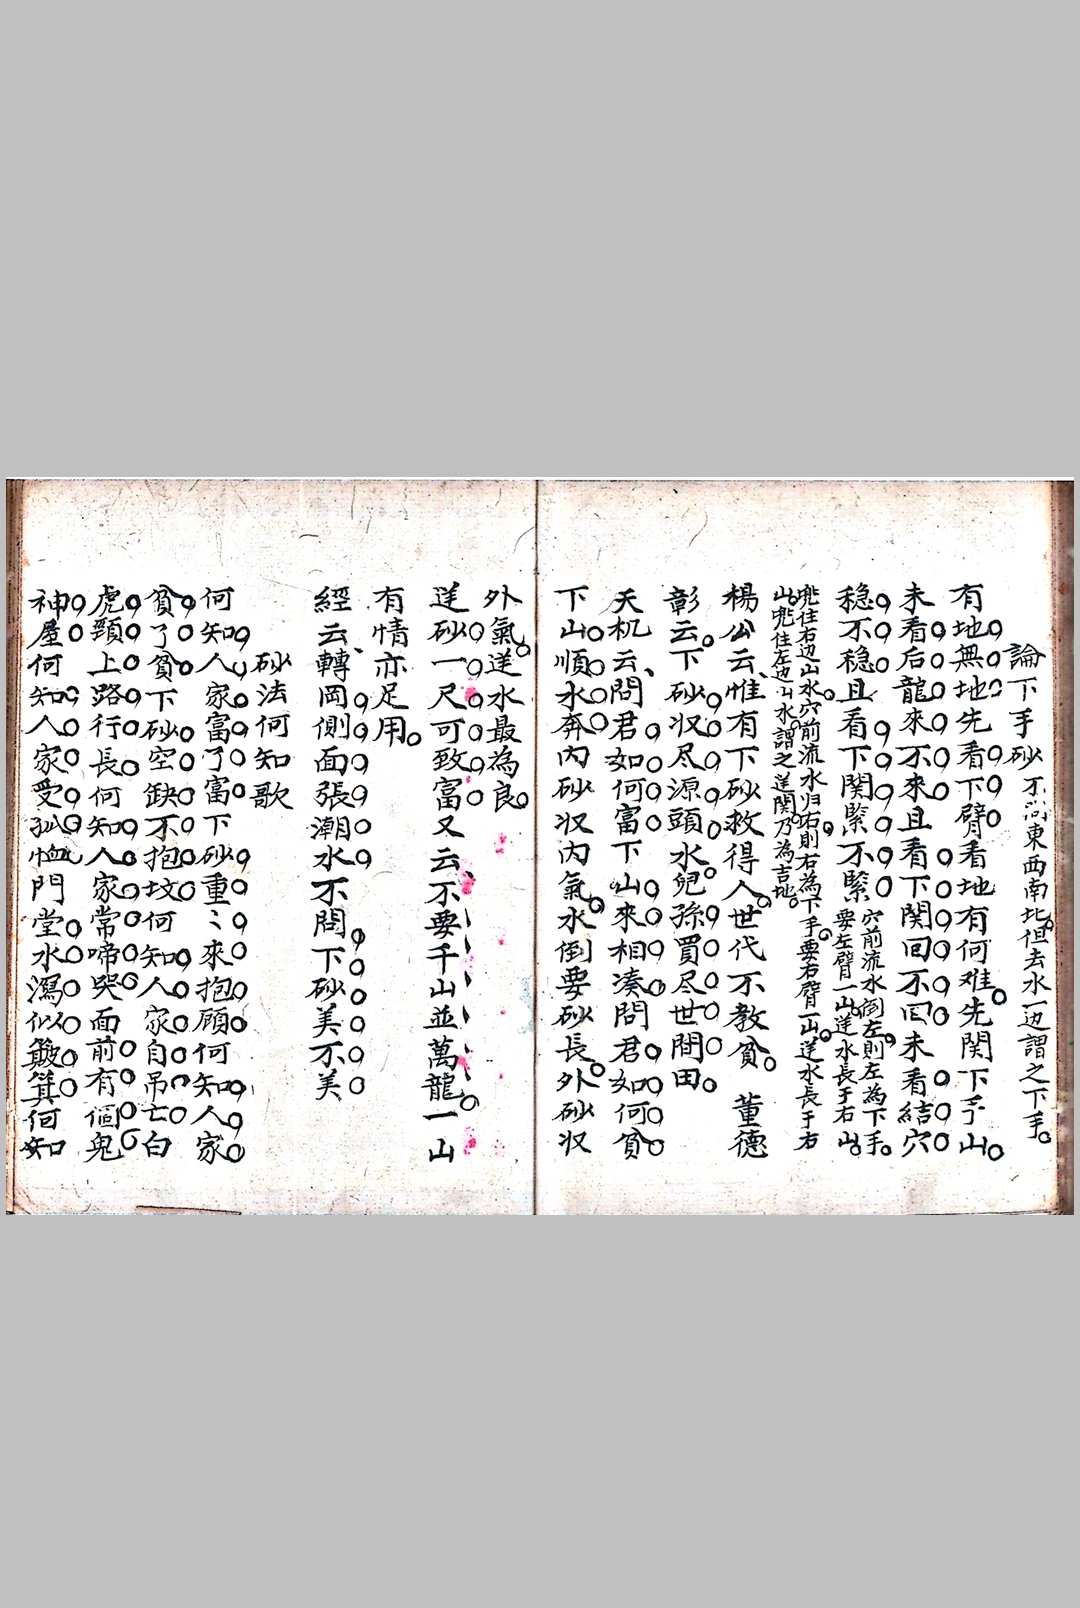 論下手砂 不尚東西南北但去水一边謂之下手
有地無地先看下臂看地有何难先関下手山
未看后龍來不來且看下関囬不囬未看結穴
稳不稳且看下関緊不緊 穴前流水倒左則左為下手
要左臂一山逆水長于右山
兠住右边山水穴前流水归右則右為下手要右臂一山逆水長于右
山兠住左边山水謂之逆関乃為吉地
楊公云惟有下砂救得人世代不教貧 董德
彰云下砂収尽源頭水兒孫買尽世間田
天机云問君如何富下山來相凑問君如何貧
下山順水奔内砂収内氣水倒要砂長外砂収
外氣逆水最為良
逆砂一尺可致富又云不要千山並萬龍一山
有情亦足用
經云轉岡側面張潮水不問下砂美不美
砂法何知歌
何知人家富了富下砂重〻來抱顾何知人家
貧了貧下砂空缺不抱坟何知人家自吊亡白
虎頸上路行長何知人家常啼哭面前有個鬼
神屋何知人家受孤恤門堂水瀉似簸箕何知